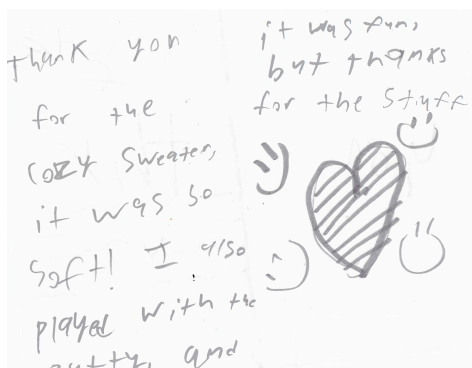 thank you
for the
cozy sweater,
it was so
soft! I also
played with the
putty, and
it was fun,
but thanks
for the stuff